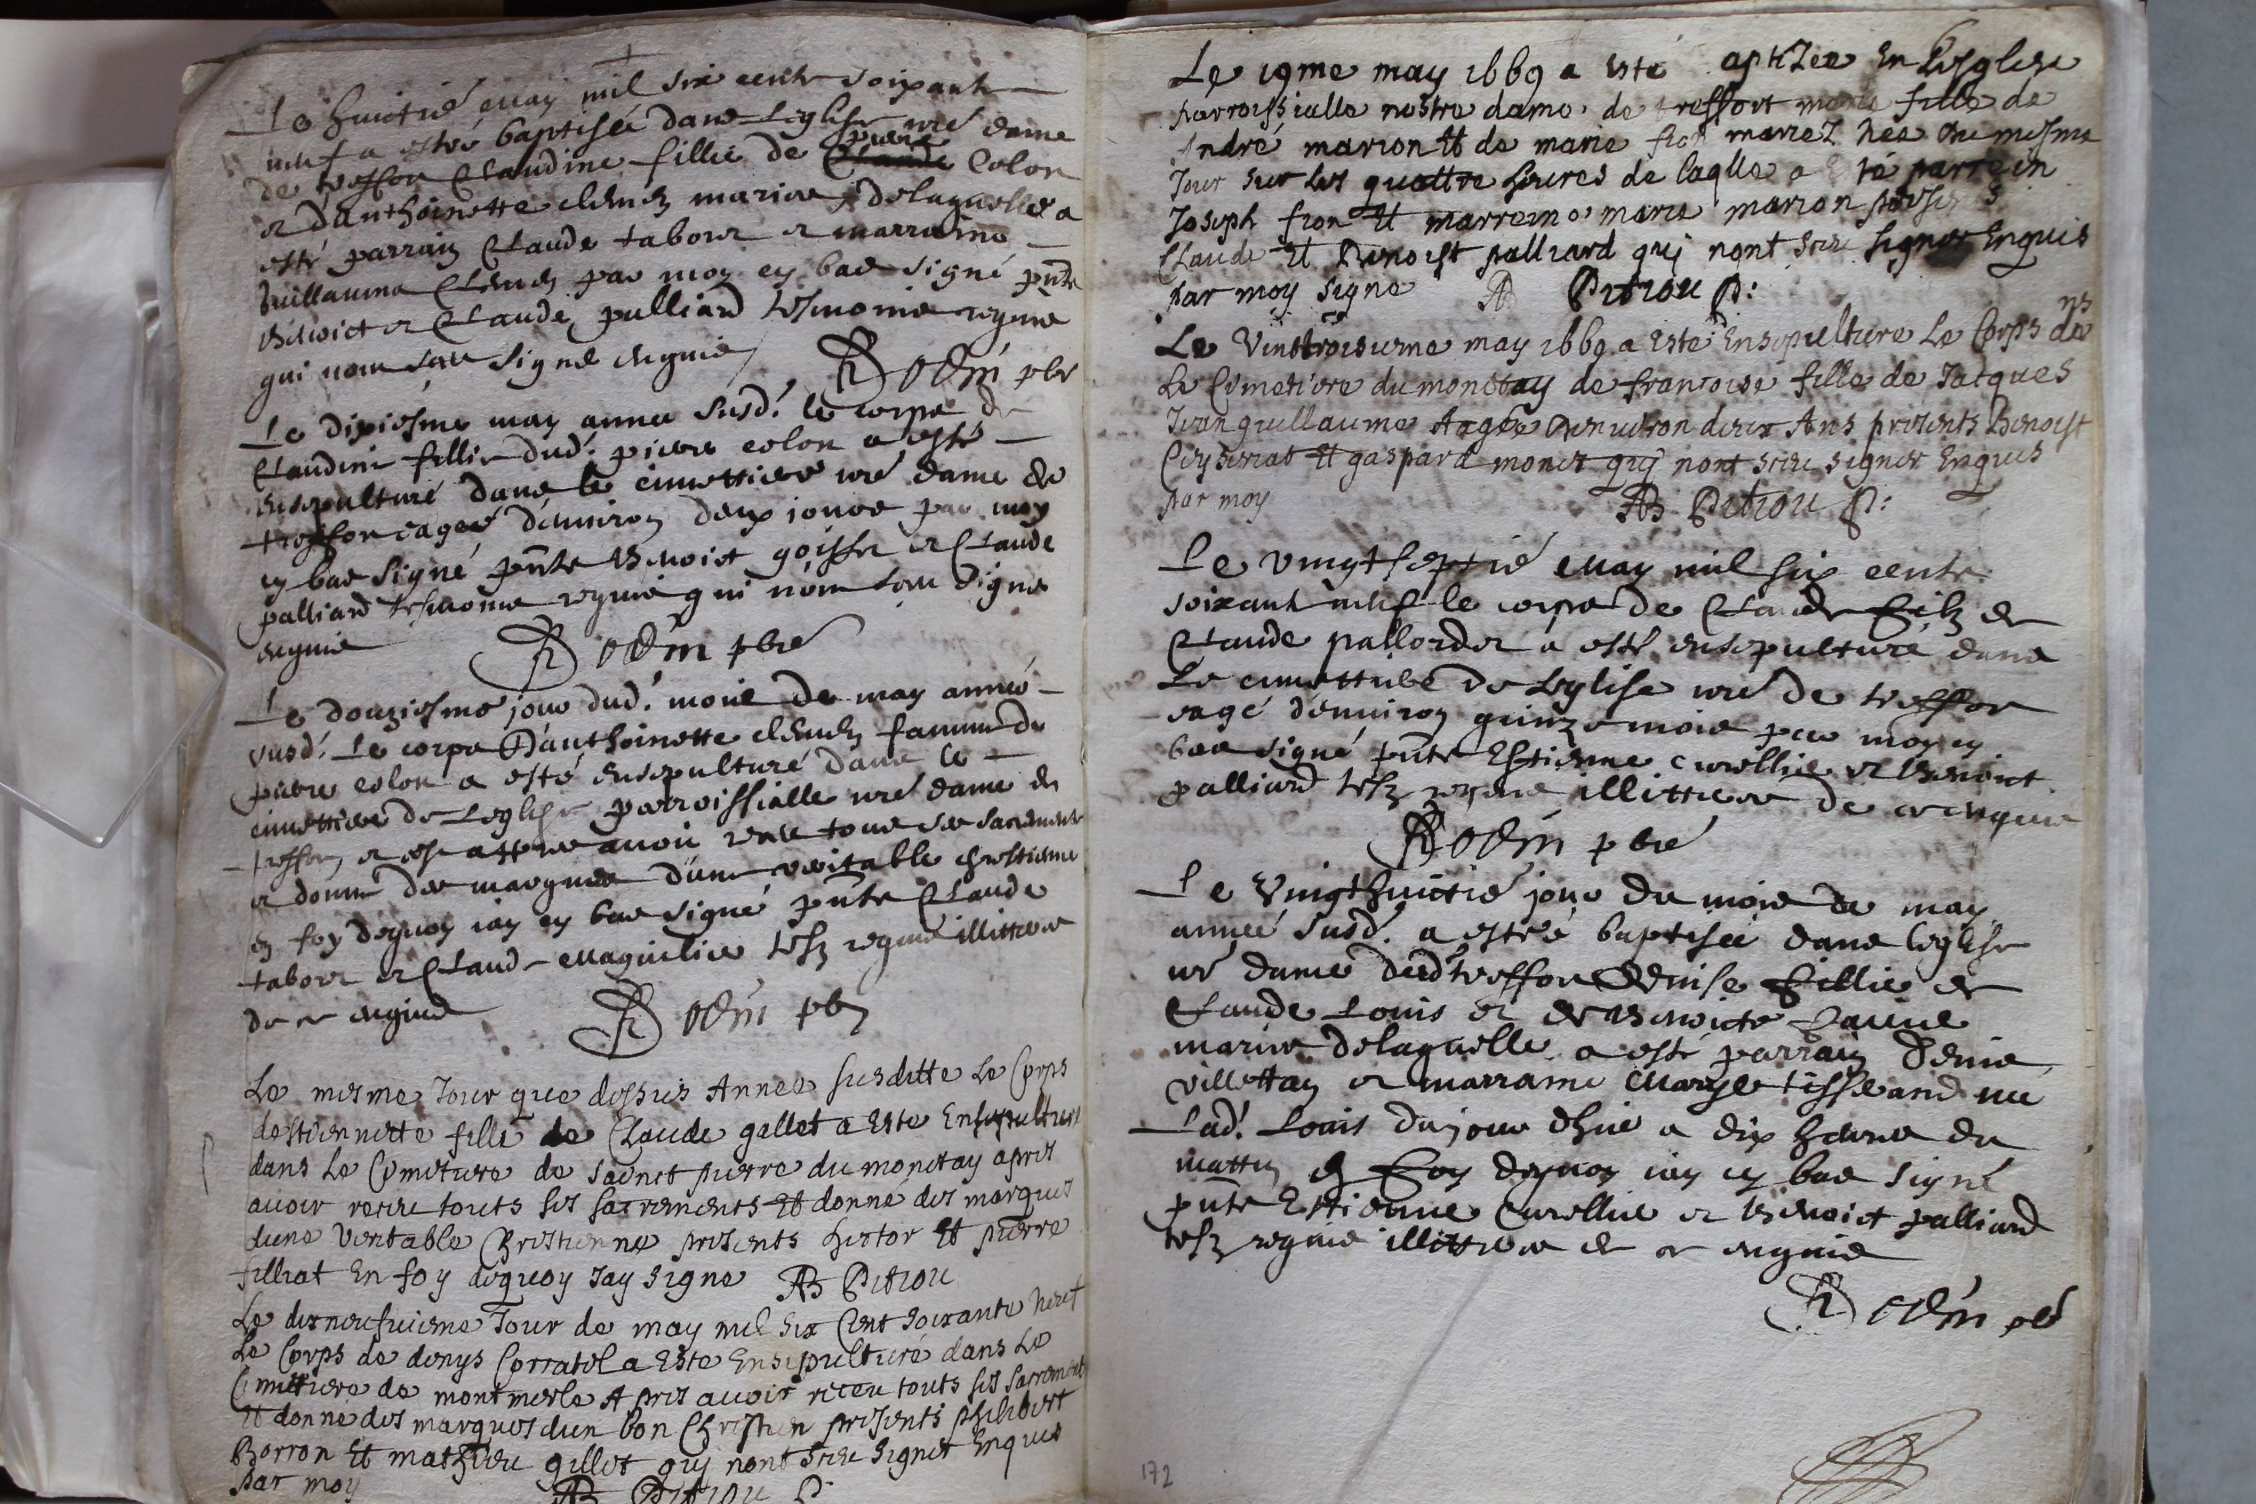 Le huictié may mil six cents soixante
neuf a estée baptisée dans Leglise nré dame
de treffor Claudine fillie de pierre Claude Colon
et danthoinette clemen mariés, delaquelle a
esté parrain Claude tabour et marraine
Guillauma Clemen par moy cy bas signé pnts
Benoict et Claude palliard tesmoins reqmis
qui nont sceu signé enquis
pbr
Le dixiesme may année susd. le corps de
Claudine fillie dud. piere colon a esté
ensepulturé dans le cimettiere nré dame de
treffor eagée denuiron deux jours par moy
cy bas signé pnts Benoict goiffon et Claude
palliard tesmoins requis qui nont sceu signé
enquis
pbré
Le douziesme jour dud. mois de may année
susd. Le corps Danthoinette clemen famme de
piere colon a esté ensepulturé dans le
cimettiere de Leglise parroissialle nré dame de
treffor, et ce appres auoir receu tous ses sacrements
et donné des marques dune veritable chrestienne
en foy dequoy iay cy bas signé pnts Claude
tabour et Claude tesm requis illitteres
de ce enquis
pbr
Le mesme Jour que dessus Année susditte Le Corps
destiennette fille de Claude gallet a Este Ensepulturé
dans Le Cimetiere de Sainct pierre du monetay apres
auoir receu touts ses sacrements Et donné des marques
dune Veritable Chrestienne presents hector Et pierre
filliat En foy dequoy Jay signe AB Pitiou
Le dixneufuieme Jour de may mil six Cent soixante neuf
Le Corps de denys Corratel a Este Ensepulturé dans Le
Cimettiere de montmerle Apres auoir receu touts ses Sacrements
Et donné des marques dun bon Chrestien presents philibert
Borron Et mathieu gillet quj nont sceu signer Enquis
par moy
AB Pitiou P.
Le 19me may 1669 a este aptizee En Lesglise
parroissialle nostre dame de treffort marie fille de
André marion Et de marie fion mariez nee du mesme
Jour sur Les quattre heures de laqlle a Esté parrein
Joseph fion Et marreine marie marion presens
Claude Et Benoist palliard quj nont sceu signer Enquis
par moy signe AB Pitiou P:
Le Vinttroisieme may 1669 a Este Ensepulture Le Corps dans
Le Cimetiere du monetay de francoise fille de Jacques
Jean guillaume Aagee denuiron deux Ans presents Benoist
Ceyseriat Et gaspard monet quj nont sceu signer Enquis
par moy
AB Pitiou P:
Le vingtseptié may mil six cents
soixante neuf le corps de Claude filz de
Claude pallordet a esté ensepulturé dans
Le cimettiere de Leglise nré de treffor
eagé denuiron quinze mois par moy cy
bas signé pnts Estienne Curellie et Benoict
palliard tesm requis illitteres de ce enquis
pbré
Le Vingthuictié jour du mois de may
année susd. a estée baptisée dans leglise
nré dame dud treffor Denise fillie de
Claude Louis et de Benoicte
mariés delaquelle a esté parrain Denis
villettan et marraine Marye tisserand née
Lad. Louis dujour dhuis a dix heures du
mattin en foy dequoy iay cy bas signé
pnts Estienne Curellie et Benoict palliard
tesm requis illitteres de ce enquis
pb
172